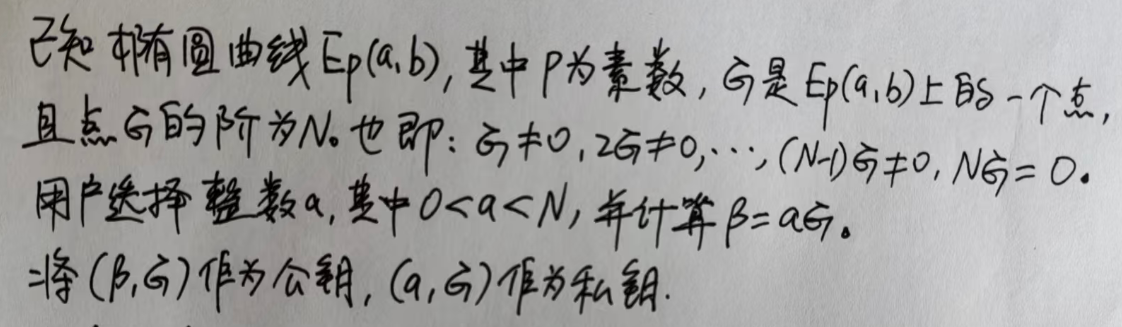 已知椭圆曲线Ep(a,b),其中P为素数,G是Ep(a,b)上的一个点,
且点G的阶为N。也即:G≠0,2G≠0,⋯,(N-1)G≠0,NG=0。
用户选择整数a,其中0<a<N,并计算β=aG。
将(β,G)作为公钥,(a,G)作为私钥.